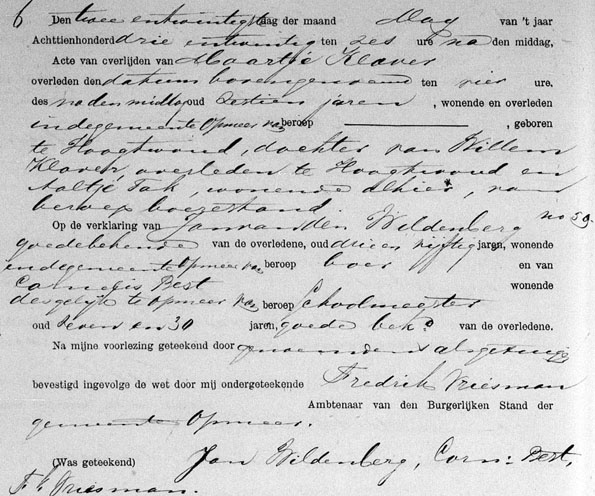 6 Den twee entwintigste dag der maand May van 't jaar
Achttienhonderd drie entwintig ten zes ure na den middag,
Acte van overlijden van Maartje Klaver
overleden den datum bovengenoemd ten vier ure,
des na den middag oud Zestien jaren , wonende en overleden
in de gemeente Opmeer van beroep , geboren
te Hoogtwoud, dochter van Willem
Klaver, overleden te Hoogtwoud en
Aaltje Tak, wonende alhier, van
beroep boerestand.
Op de verklaring van Jan van den Wildenberg no 59.
goede bekende van de overledene, oud drie en vijftig jaren, wonende
in de gemeente Opmeer van beroep boer en van
Cornelis Best wonende
desgelijk te Opmeer van beroep Schoolmeester
oud zeven en 30 jaren, goede bek. van de overledene.
Na mijne voorlezing geteekend door genoemden als getuige
bevestigd ingevolge de wet door mij ondergeteekende Fredrik Vriesman
Ambtenaar van den Burgerlijken Stand der
gemeente Opmeer.
(Was geteekend) Jan Wildenberg, Corn: Best,
F. Vriesman.